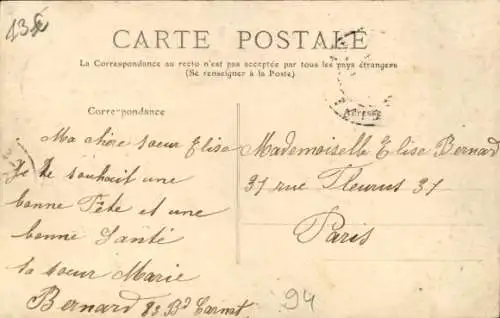 135
CARTE POSTALE
La Correspondance au recto n'est pas acceptée par tous les pays étrangers
(Se renseigner à la Poste)
Correspondance
ADRESSE
Ma chère soeur Elise
Je te souhait une
bonne Fête et une
bonne Santé
ta soeur Marie
Bernard 83 Bd Carnot
Mademoiselle Elise Bernard
37 rue Fleurus 37
Paris
94